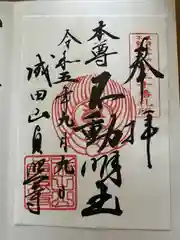 奉拝
本尊
不動明王
令和五年九月九日
成田山貞照寺